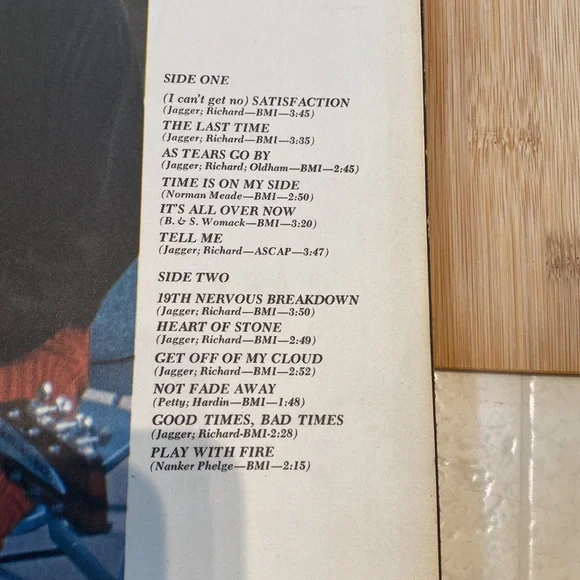 SIDE ONE
(I can't get no) SATISFACTION
(Jagger; Richard—BMI—3:45)
THE LAST TIME
(Jagger; Richard—BMI—3:35)
AS TEARS GO BY
(Jagger; Richard; Oldham—BMI—2:45)
TIME IS ON MY SIDE
(Norman Meade—BMI—2:50)
IT'S ALL OVER NOW
(B. & S. Womack—BMI—3:20)
TELL ME
(Jagger; Richard—ASCAP—3:47)
SIDE TWO
19TH NERVOUS BREAKDOWN
(Jagger; Richard—BMI—3:50)
HEART OF STONE
(Jagger; Richard—BMI—2:49)
GET OFF OF MY CLOUD
(Jagger; Richard—BMI—2:52)
NOT FADE AWAY
(Petty; Hardin—BMI—1:48)
GOOD TIMES, BAD TIMES
(Jagger; Richard-BMI-2:28)
PLAY WITH FIRE
(Nanker Phelge—BMI—2:15)